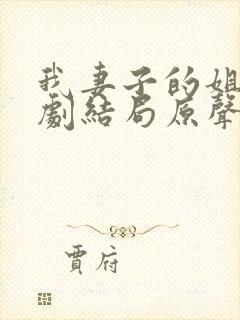 我妻子的姐
劇結局原聲
賈府